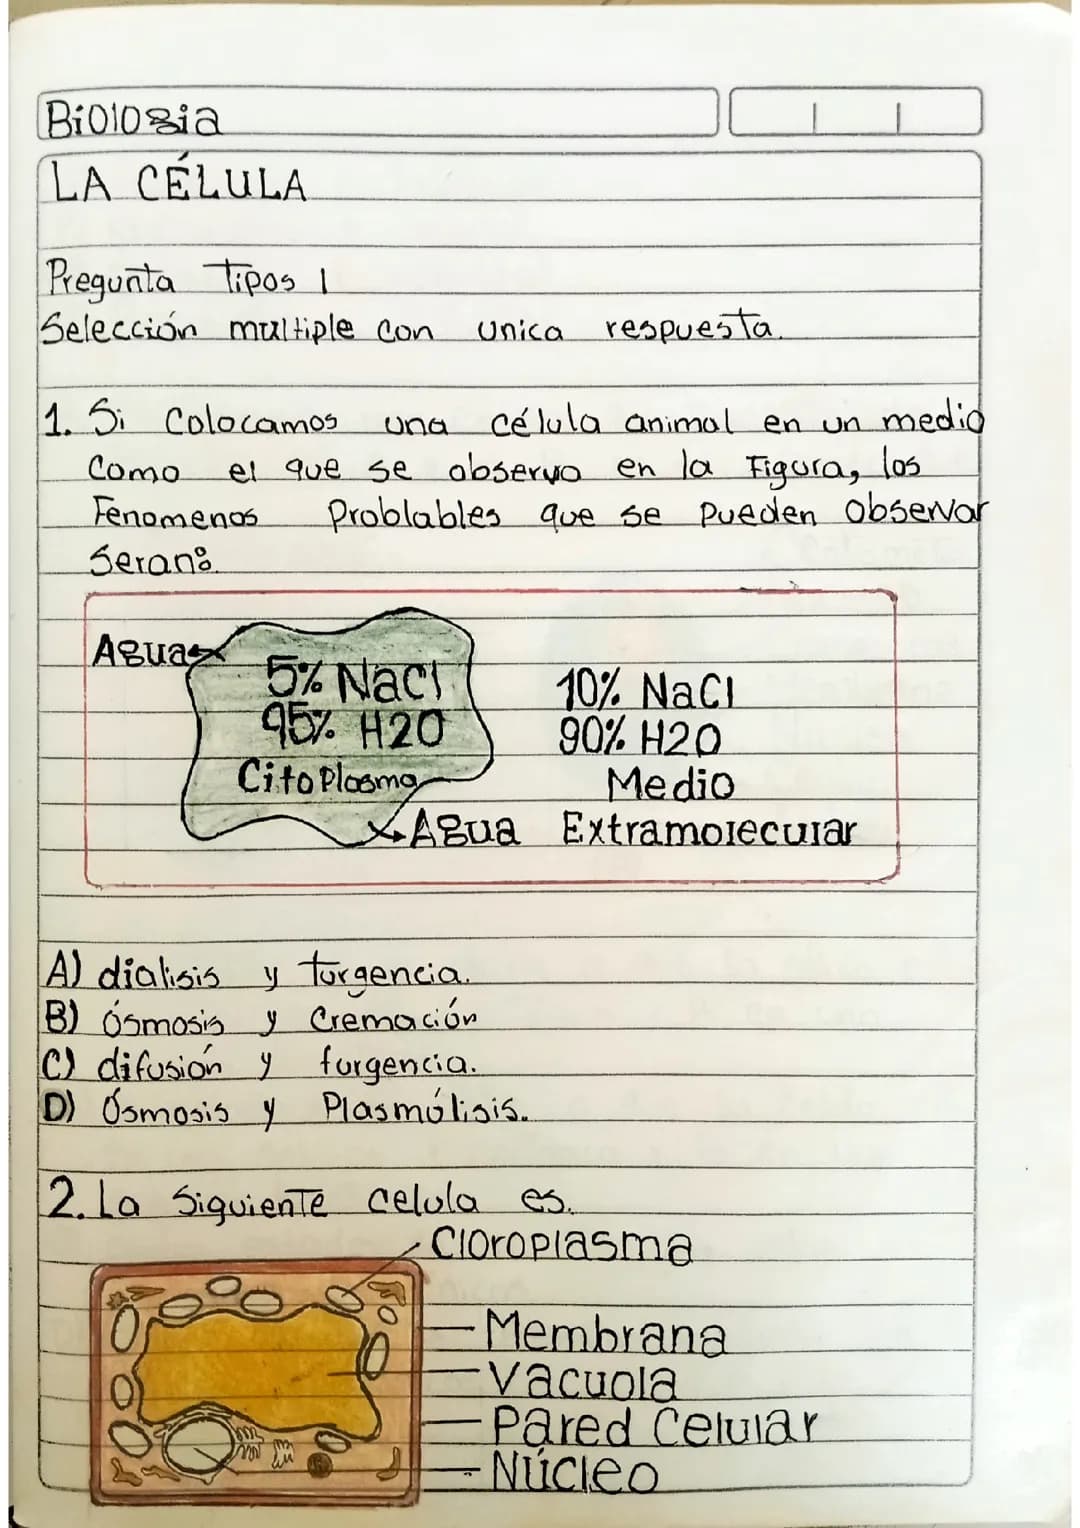 Biología
LA CÉLULA
Pregunta Tipos 1
Selección multiple con unica respuesta.
1. Si Colocamos una célula animal en un medio
Como el que se observa en la Figura, los
Fenomenos Problables que se pueden Observar
Seran:
Agua
5% NaCl
95% H2O
CitoPlasma
Agua
10% NaCl
90% H2O
Medio
Extramolecular
A) dialisis y turgencia.
B) Ósmosis y Cremación
C) difusión y furgencia.
D) Ósmosis y Plasmólisis.
2. La Siguiente celula es.
Cloroplasma
Membrana
Vacuola
Pared Celular
Núcleo